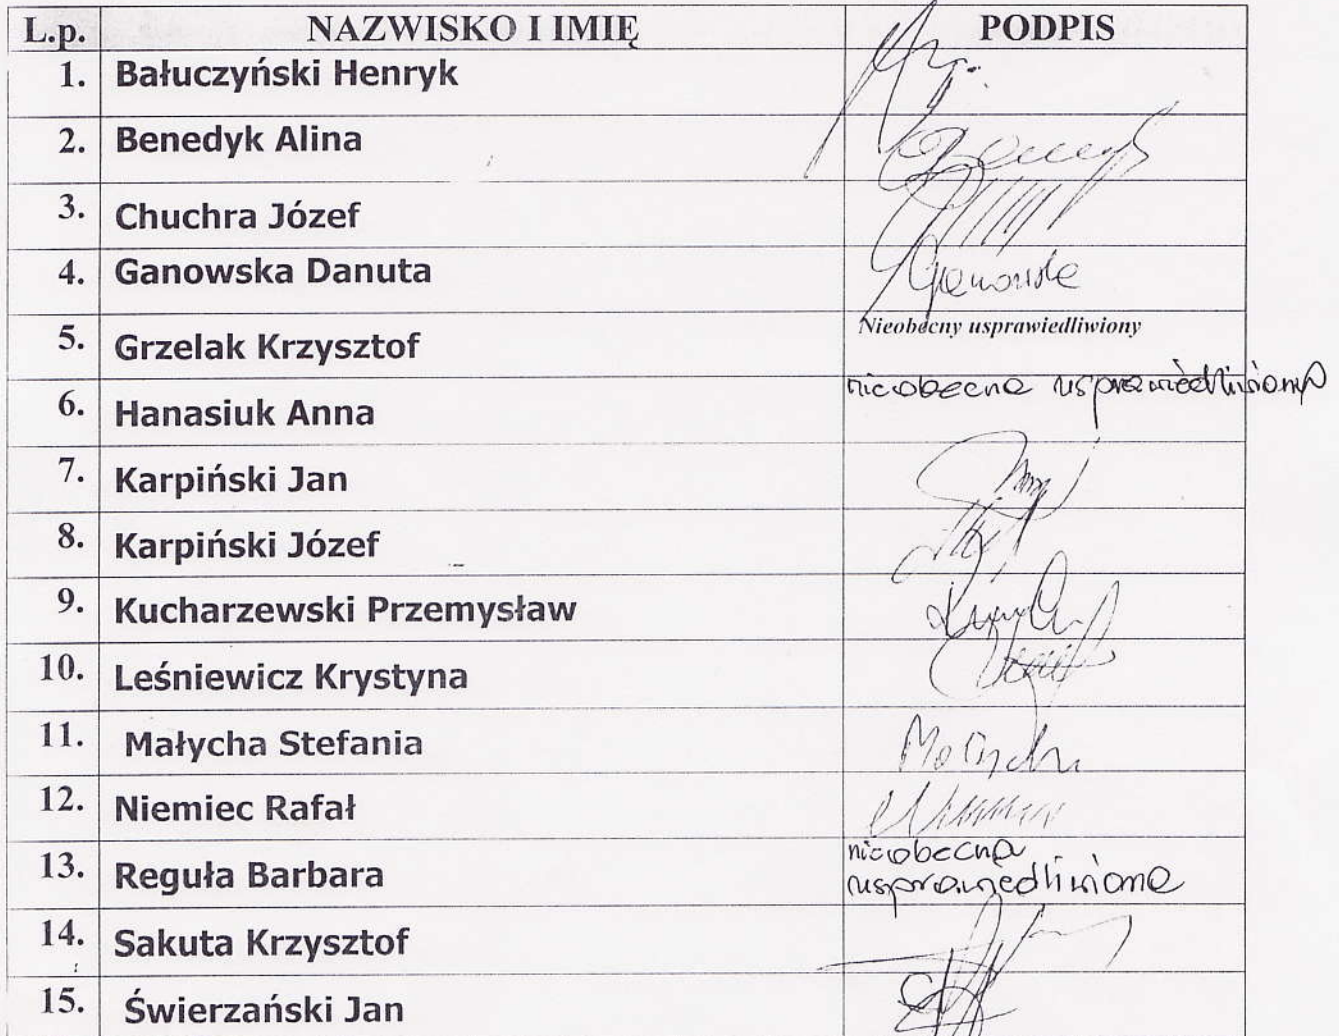 L.p. NAZWISKO I IMIĘ PODPIS
1. Bałuczyński Henryk
2. Benedyk Alina
3. Chuchra Józef
4. Ganowska Danuta Ganowska
5. Grzelak Krzysztof Nieobecny usprawiedliwiony
6. Hanasiuk Anna nieobecna usprawiedliwiona
7. Karpiński Jan
8. Karpiński Józef
9. Kucharzewski Przemysław
10. Leśniewicz Krystyna
11. Małycha Stefania Małycha
12. Niemiec Rafał
13. Reguła Barbara nieobecna
usprawiedliwiona
14. Sakuta Krzysztof
15. Świerzański Jan